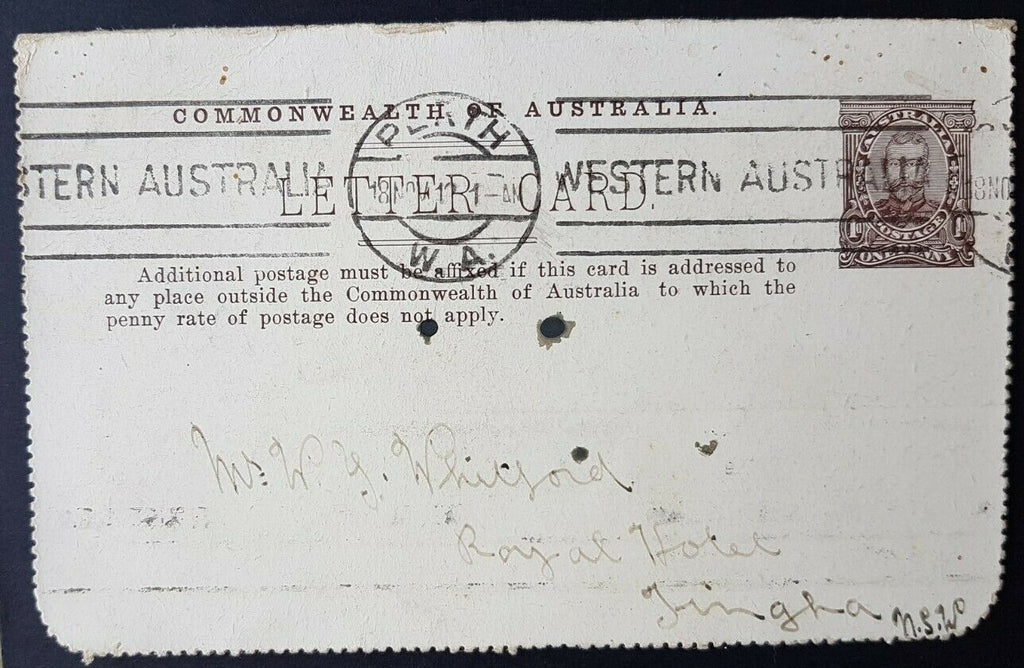 COMMONWEALTH OF AUSTRALIA.
PERTH
STERN AUSTRALIA
WESTERN AUSTRALIA
LETTER CARD.
W.A.
AUSTRALIA
POSTAGE
1D 1D
ONE PENNY
18 NO
Additional postage must be affixed if this card is addressed to
any place outside the Commonwealth of Australia to which the
penny rate of postage does not apply.
Mr. W. G. Whitford
Royal Hotel
Tingha N.S.W